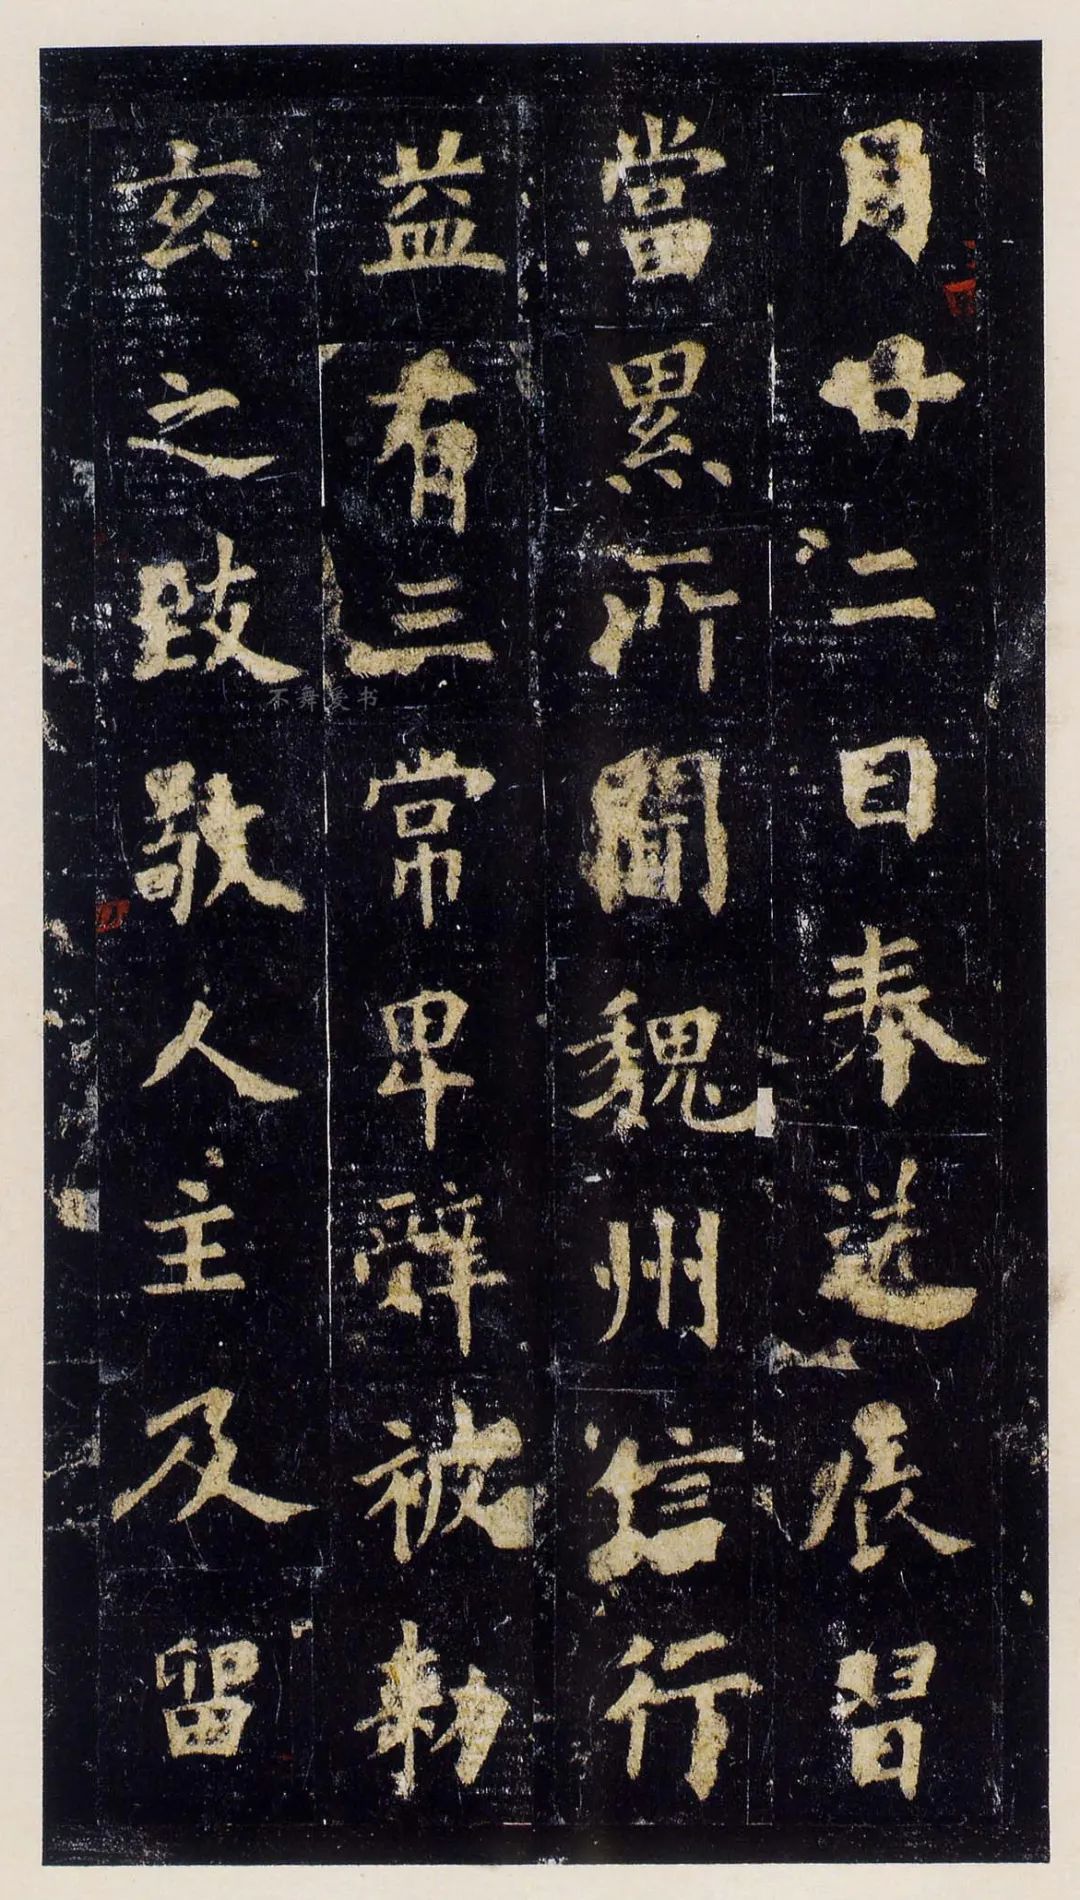 月廿二日奉送展習
當累所聞魏州信行
益有三常卑辭被勑
玄之致敬人主及留
不舞爱书